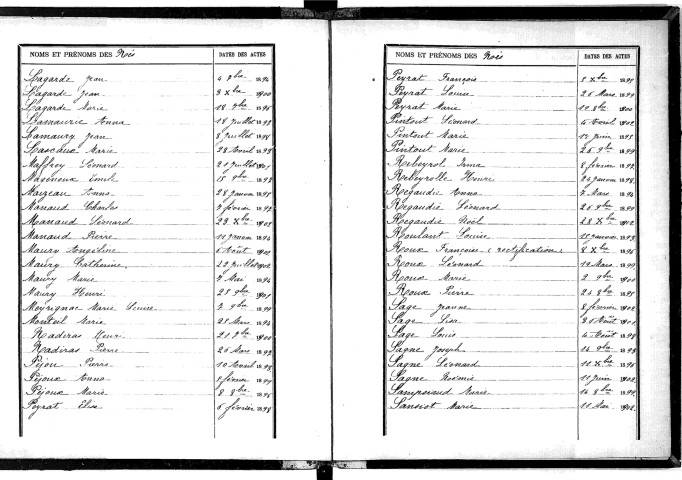 NOMS ET PRÉNOMS DES Nés DATES DES ACTES
Lagarde Jean 4 9bre 1894
Lagarde Jean 3 Xbre 1900
Lagarde Marie 18 7bre 1896
Lamaurie Anna 18 juillet 1893
Lamaury Jean 8 juillet 1898
Lascaux Marie 28 Avril 1893
Maffrey Léonard 21 juillet 1901
Magérieux Emile
Mazeau Anna 28 janvier 1895
Manaud Charles 7 février 1893
Manaud Léonard 29 Xbre 1902
Manaud Pierre 11 janvier 1894
Maury Angéline Août
Maury Catherine 22 juillet 1902
Maury Marie 7 Mai 1894
Maury Henri 28 9bre 1901
Meyrignac Marie Louise 2 9bre 1899
Monteil Marie 28 Mars 1894
Nadiras Henri 21 9bre 1900
Nadiras Pierre 26 Mars 1893
Péjou Pierre 10 Avril 1898
Péjoux Anna février
Péjoux Marie 8 8bre 1896
Peyrat Elise 6 février 1898
NOMS ET PRÉNOMS DES Nés DATES DES ACTES
Peyrat François 8 Xbre 1895
Peyrat Louise 26 Mars 1899
Peyrat Marie 20 8bre 1900
Pintout Léonard Avril 1902
Pintout Marie 17 juin 1895
Pintout Marie 26 9bre 1899
Rebeyrol Irma 8 février 1892
Rebeyrolle Henri 29 janvier 1898
Regaudie Anna 7 Mars 1894
Regaudie Léonard 26 8bre 1899
Regaudie Noël 28 Xbre 1902
Roulant Louise 11 janvier 1893
Roux Françoise (rectification) 8 Xbre 1896
Roux Léonard 12 Mars 1899
Roux Marie 2 9bre 1900
Roux Pierre 24 8bre 1895
Sage Jeanne février 1902
Sage Lisa 26 Août 1901
Sage Louis Août 1898
Sagne Joseph 14 9bre 1893
Sagne Léonard 11 Xbre 1896
Sagne Noémie 11 juin 1902
Sampoiaud Marie 14 8bre 1899
Sansiot Marie 11 Mai 1902